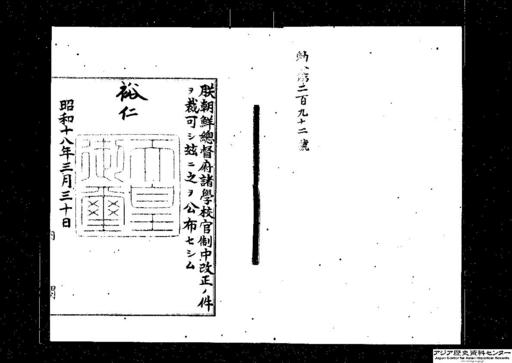 勅令第二百九十二號
朕朝鮮總督府諸學校官制中改正ノ件
ヲ裁可シ茲ニ之ヲ公布セシム
裕仁
天皇御璽
昭和十八年三月三十日
内閣
アジア歴史資料センター
Japan Center for Asian Historical Records